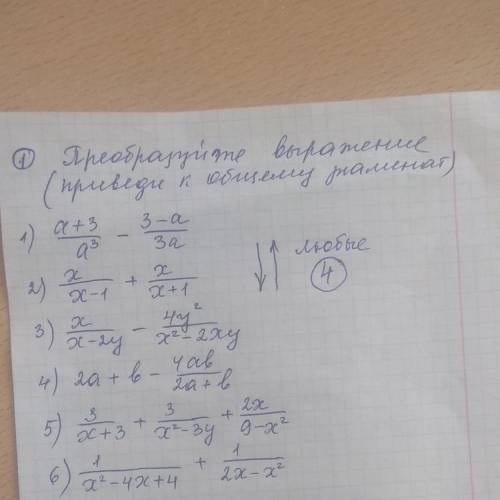 ① Преобразуйте выражение
(приведи к общему знаменат)
1) (a+3)/a³ − (3−a)/3a
2) x/(x−1) + x/(x+1)
любые
④
3) x/(x−2y) − 4y²/(x²−2xy)
4) 2a + b − 4ab/(2a+b)
5) 3/(x+3) + 3/(x²−3y) + 2x/(9−x²)
6) 1/(x²−4x+4) + 1/(2x−x²)